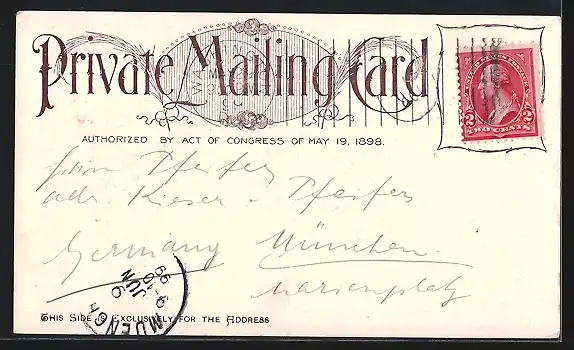 Private Mailing Card
AUTHORIZED BY ACT OF CONGRESS OF MAY 19, 1898.
2 TWO CENTS 2
Herrn Pfeifer
adr. Kieser & Pfeifer
Germany München
Marienplatz
MUENCH
JUN 9
99
THIS SIDE IS EXCLUSIVELY FOR THE ADDRESS